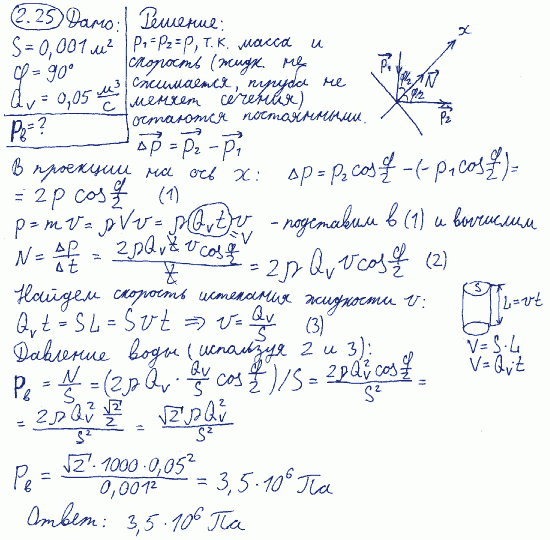 2.25 Дано:
S = 0,001 м²
φ = 90°
Qᵥ = 0,05 м³/с
Pв = ?
Решение:
p₁ = p₂ = p, т.к. масса и
скорость (жидк не
сжимается, труба не
меняет сечения)
остаются постоянными.
x
p₁ φ/2 N
φ/2
p₂
Δp = p₂ - p₁
В проекции на ось x: Δp = p₂cos φ/2 - (-p₁cos φ/2) =
= 2p cos φ/2 (1)
p = mv = ρVv = ρQᵥtv - подставим в (1) и вычислим
=V
N = Δp/Δt = 2ρQᵥtvcos φ/2 / t = 2ρQᵥvcos φ/2 (2)
Найдем скорость истекания жидкости v:
Qᵥt = SL = Svt ⇒ v = Qᵥ/S (3)
S
L = vt
V = S·L
V = Qᵥ·t
Давление воды (используя 2 и 3):
Pв = N/S = (2ρQᵥ · Qᵥ/S cos φ/2)/S = 2ρQᵥ²cos φ/2 / S² =
= 2ρQᵥ² √2/2 / S² = √2 ρQᵥ² / S²
Pв = √2·1000·0,05² / 0,001² = 3,5·10⁶ Па
Ответ: 3,5·10⁶ Па